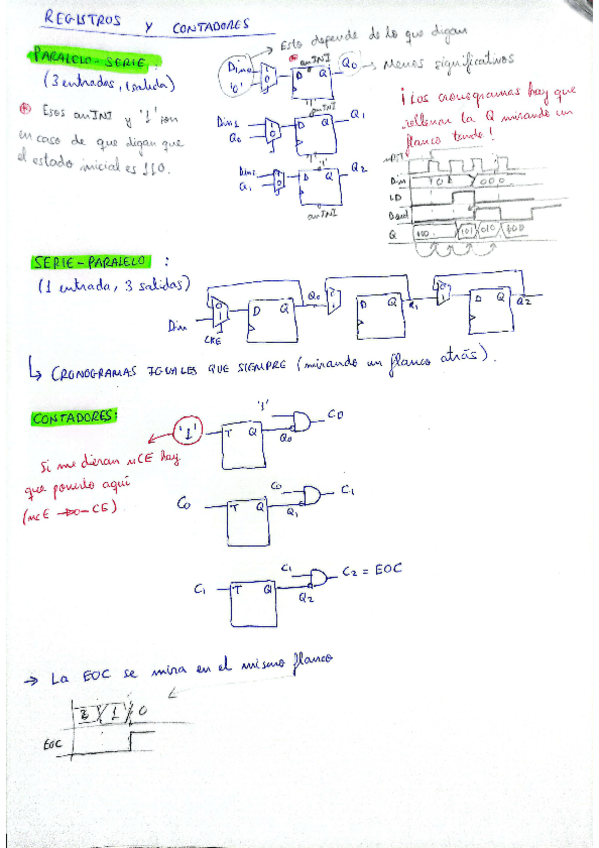 REGISTROS Y CONTADORES
PARALELO-SERIE:
(3 entradas, 1 salida)
⊛ Esos anINI y '1' son
en caso de que digan que
el estado inicial es 110.
Esto depende de lo que digan
Din0
'0'
D Q
anINI
'1'
Q0
Menos significativos
Din1
Q0
D Q
anINI
'1'
Q1
Din2
Q1
D Q
'1'
anINI
Q2
¡Los cronogramas hay que
rellenar la Q mirando un
flanco tarde!
Din
LD
Dout
Q
SERIE-PARALELO :
(1 entrada, 3 salidas)
Din
0
1
CKE
D Q
Q0
D Q
Q1
D Q
Q2
↳ CRONOGRAMAS IGUALES QUE SIEMPRE (mirando un flanco atrás).
CONTADORES:
'1'
T Q
'1'
Q0
C0
Si me dieran nCE hay
que ponerlo aquí
(nCE CE).
C0
T Q
C0
Q1
C1
C1
T Q
C1
Q2
C2 = EOC
→ La EOC se mira en el mismo flanco
3 1 0
EOC